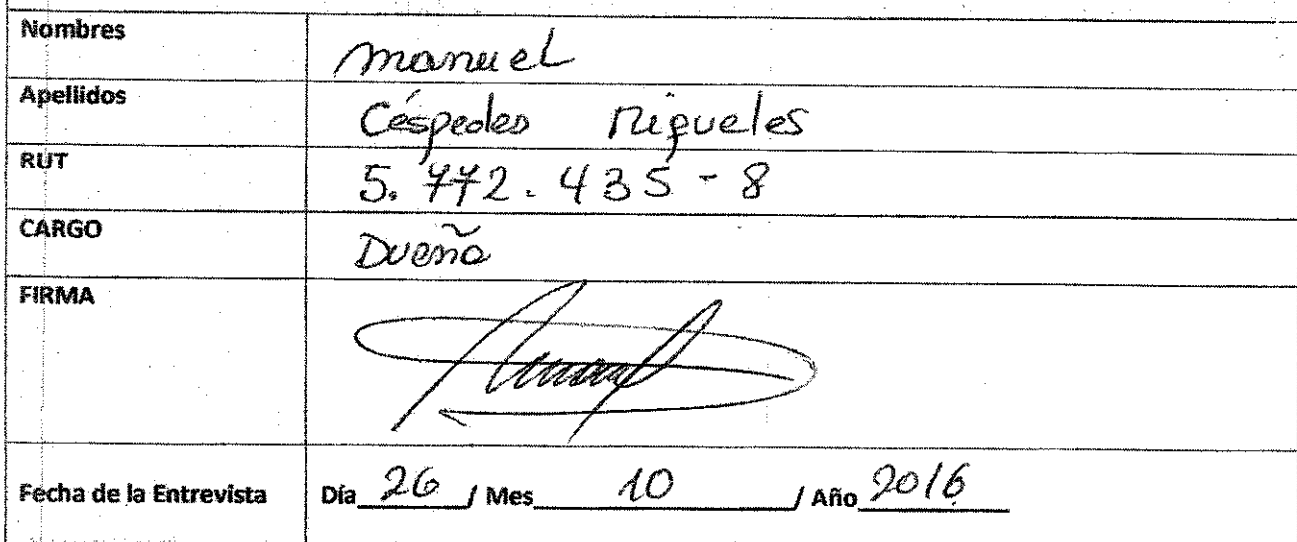 Nombres manuel
Apellidos Céspedes Migueles
RUT 5.772.435-8
CARGO Dueño
FIRMA
Fecha de la Entrevista Día 26 / Mes 10 / Año 2016